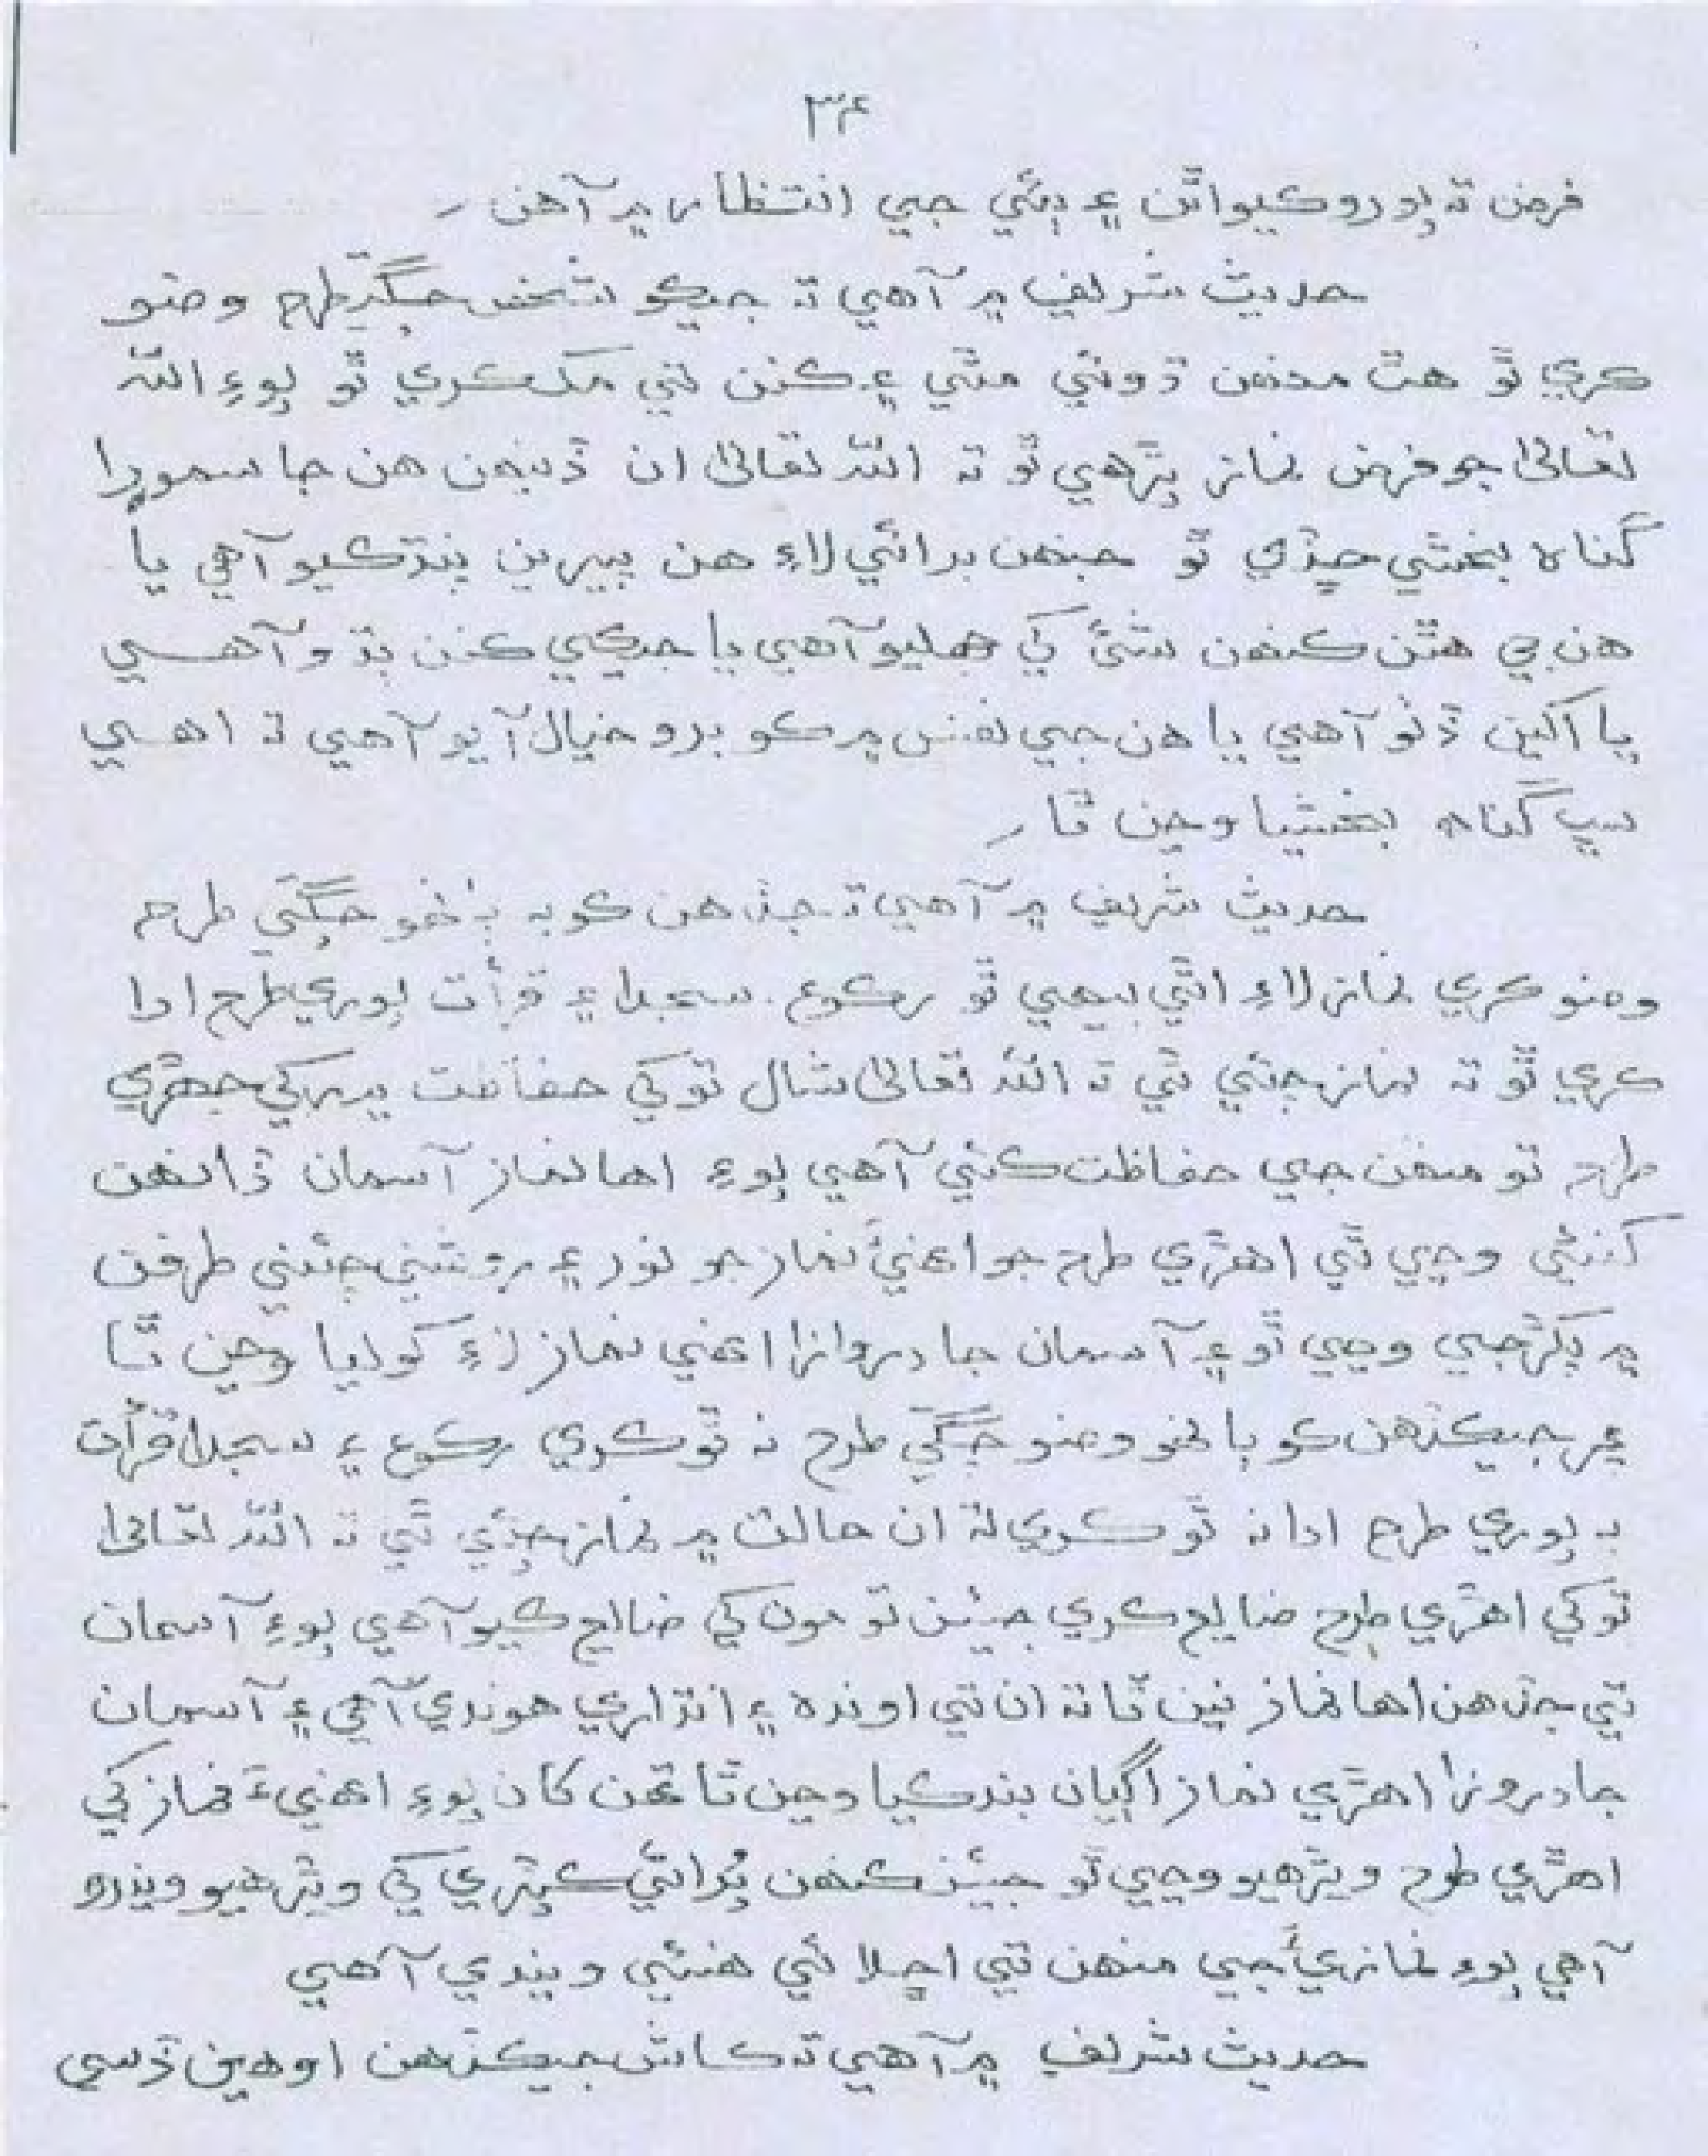 ۳۴
فرض تہ پورو ڪيو اٿن ۽ ٻئي جي انتظار ۾ آهن۔
حديث شريف ۾ آهي تہ جيڪو شخص چڱيَ طرح وضو
ڪري ٿو هٿ منهن ڌوئي مٿي ۽ ڪنن تي مڪ ڪري ٿو پوءِ الله
تعاليٰ جو فرض نماز پڙهي ٿو تہ الله تعاليٰ ان ڏينهن هن جا سمورا
گناه بخشي ڇڏي ٿو جنهن برائي لاءِ هن پيرين پنڌ ڪيو آهي يا
هن جي هٿن ڪنهن شئ کي جهليو آهي يا جيڪي ڪنن ٻڌو آهي
يا اکين ڏٺو آهي يا هن جي نفس ۾ ڪو برو خيال آيو آهي تہ اهي
سڀ گناه بخشيا وڃن ٿا۔
حديث شريف ۾ آهي تہ جڏهن ڪو بہ ٻانهو چڱيَ طرح
وضو ڪري نماز لاءِ اٿي بيهي ٿو رڪوع۔ سجدا ۽ قرأت پوري طرح ادا
ڪري ٿو تہ نماز چئي ٿي تہ الله تعاليٰ شال توکي حفاظت ۾ رکي جهڙي
طرح تو منهن جي حفاظت ڪئي آهي پوءِ اها نماز آسمان ڏانهن
کنئي وڃي ٿي اهڙي طرح جو اهنيَ نماز جو نور ۽ روشني چئني طرفن
۾ پکڙجي وڃي ٿو ۽ آسمان جا دروازا اهني نماز لاءِ کوليا وڃن ٿا
۽ جيڪڏهن ڪو ٻانهو وضو چڱيَ طرح نہ ٿو ڪري رڪوع ۽ سجدا قرأت
بہ پوري طرح ادا نہ ٿو ڪري تہ ان حالت ۾ نماز چئي ٿي تہ الله تعاليٰ
توکي اهڙي طرح ضايع ڪري جيئن تو مون کي ضايع ڪيو آهي پوءِ آسمان
تي جڏهن اها نماز نين ٿا تہ ان تي اونده ۽ انڌاري هوندي آهي ۽ آسمان
جا دروزا اهڙي نماز اڳيان بند ڪيا وڃن ٿا تهن کان پوءِ اهنيءَ نماز کي
اهڙي طرح ويڙهيو وڃي ٿو جيئن ڪنهن پُراڻي ڪپڙي کي ويڙهيو ويندو
آهي پوءِ نمازيءَ جي منهن تي اڇلائي هنئي ويندي آهي
حديث شريف ۾ آهي تہ ڪاش جيڪڏهن اوهين ڏسي